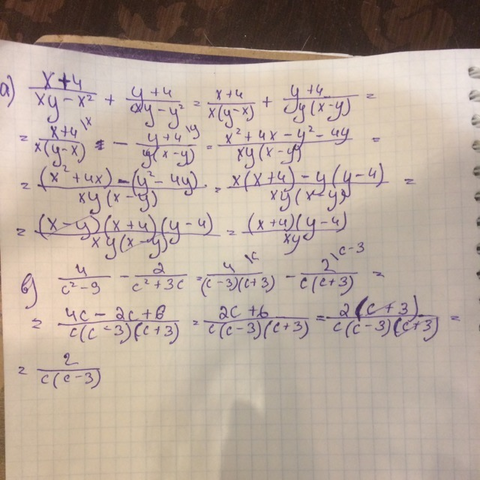 а) (x+4)/(xy-x²) + (y+4)/(xy-y²) = (x+4)/(x(y-x)) + (y+4)/(y(x-y)) =
= (x+4)^{\x}/(x(y-x)) - (y+4)^{\y}/(y(x-y)) = (x²+4x-y²-4y)/(xy(x-y)) =
= ((x²+4x)-(y²-4y))/(xy(x-y)) = (x(x+4)-y(y-4))/(xy(x-y)) =
= ((x-y)(x+4)(y-4))/(xy(x-y)) = ((x+4)(y-4))/(xy)
в) 4/(c²-9) - 2/(c²+3c) = 4^{\c}/((c-3)(c+3)) - 2^{\c-3}/(c(c+3)) =
= (4c-2c+6)/(c(c-3)(c+3)) = (2c+6)/(c(c-3)(c+3)) = (2(c+3))/(c(c-3)(c+3)) =
= 2/(c(c-3))